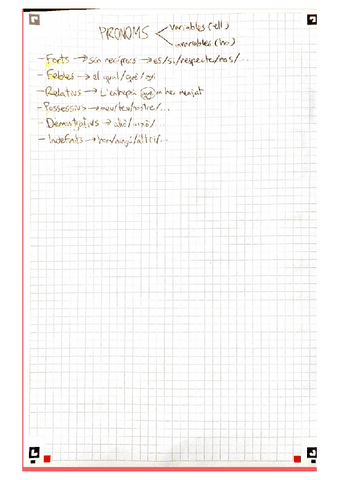 PRONOMS
variables (ell)
invariables (ho)
- Forts → són recíprocs → es/si/respecte/nos/...
- Febles → el qual/què/qui
- Relatius → L'entrepà que m'he menjat
- Possessius → meu/teu/nostre/...
- Demostratius → això/
- Indefinits → hom/ningú/altri/...